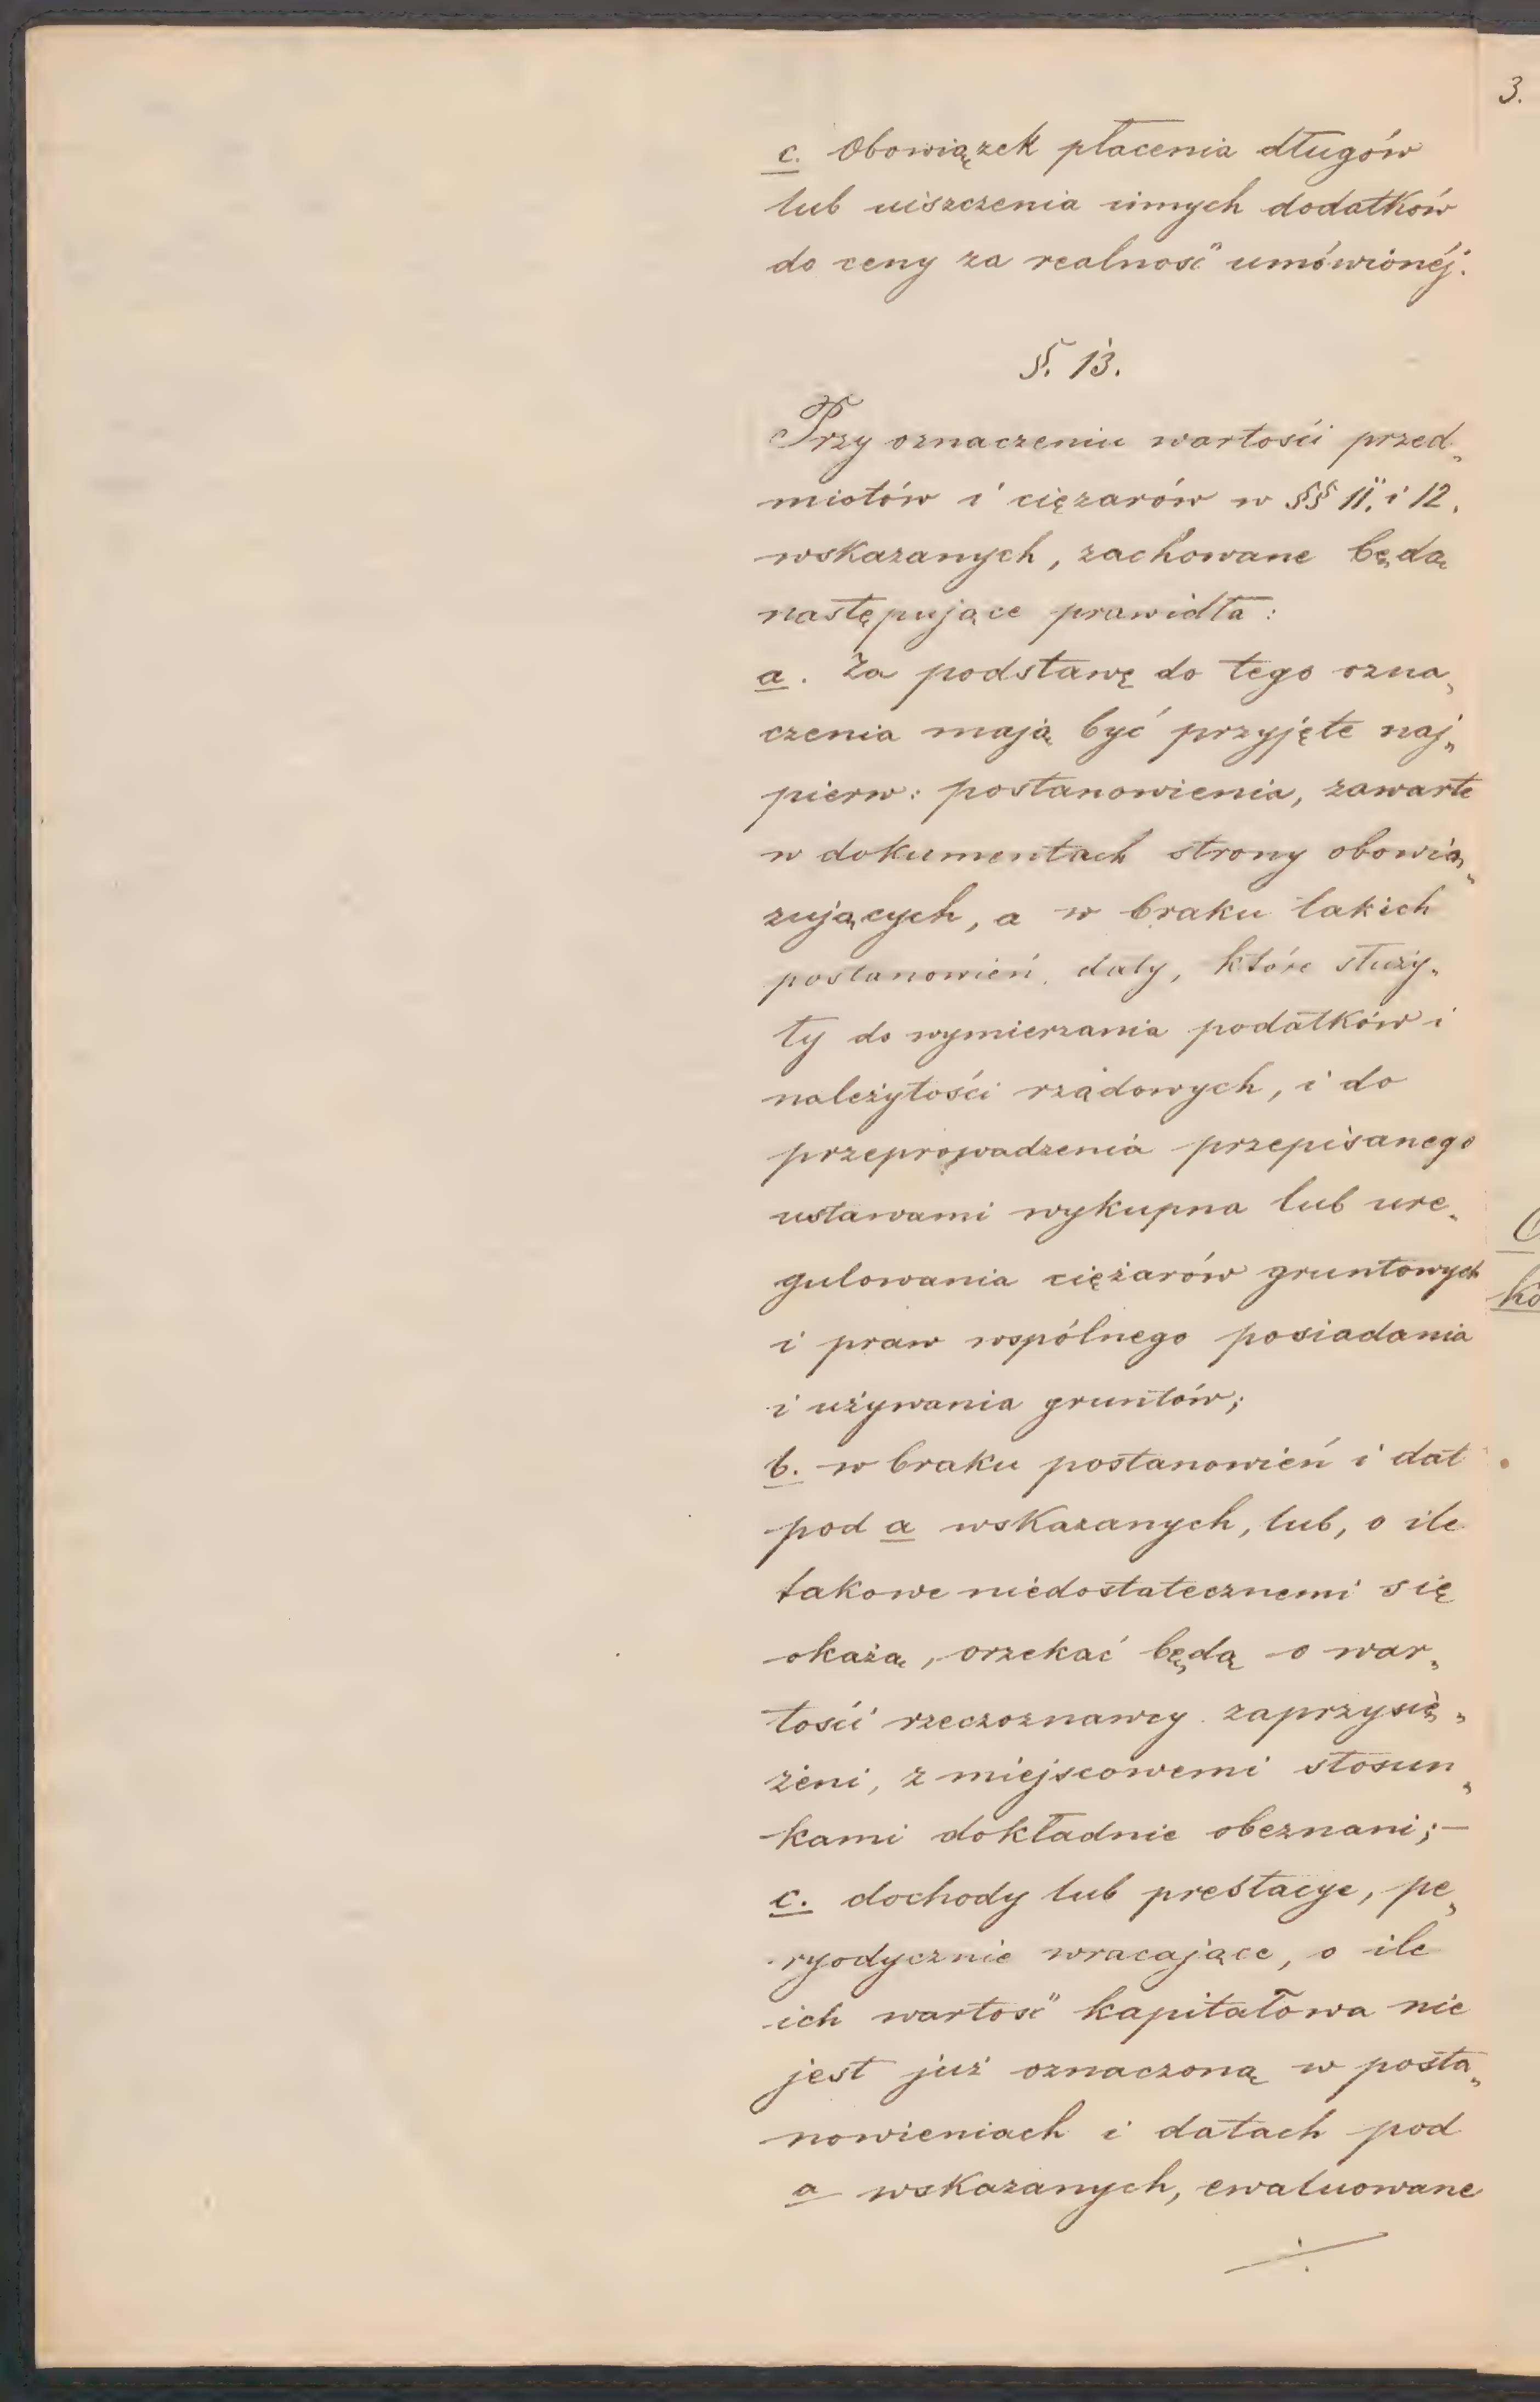 3.
c. Obowiązek płacenia długów
lub uiszczenia innych dodatków
do ceny za realność umówionéj.
§. 13.
Przy oznaczeniu wartości przed„
miotów i ciężarów w §§ 11. i 12.
wskazanych, zachowane będą
następujące prawidła:
a. Za podstawę do tego ozna„
czenia mają być przyjęte naj„
pierw: postanowienia, zawarte
w dokumentach strony obowią„
zujących, a w braku takich
postanowień, daty, które służy„
ły do wymierzania podatków i
należytości rządowych, i do
przeprowadzenia przepisanego
ustawami wykupna lub ure„
gulowania ciężarów gruntowych
i praw wspólnego posiadania
i używania gruntów;
b. w braku postanowień i dat
pod a wskazanych, lub, o ile
takowe niedostatecznemi się
okażą, orzekać będą o war„
tości rzeczoznawcy zaprzysię„
żeni, z miejscowemi stosun„
kami dokładnie obeznani;—
c. dochody lub prestacye, pe„
ryodycznie wracające, o ile
ich wartość kapitałowa nie
jest już oznaczoną w posta„
nowieniach i datach pod
a wskazanych, ewaluowane